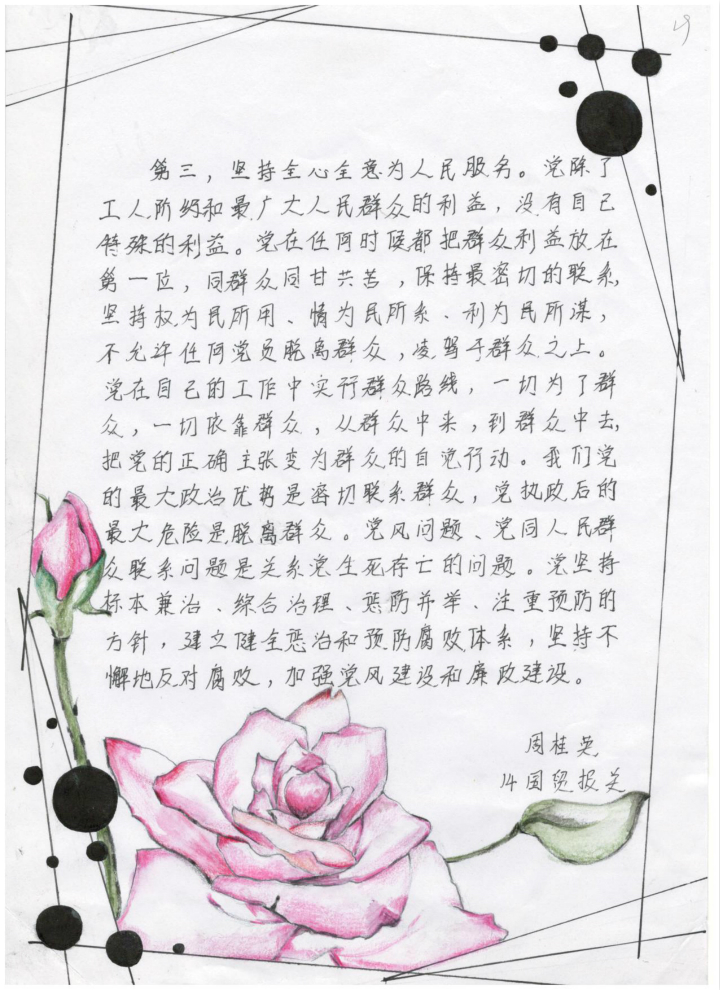 第三，坚持全心全意为人民服务。党除了
工人阶级和最广大人民群众的利益，没有自己
特殊的利益。党在任何时候都把群众利益放在
第一位，同群众同甘共苦，保持最密切的联系，
坚持权为民所用、情为民所系、利为民所谋，
不允许任何党员脱离群众，凌驾于群众之上。
党在自己的工作中实行群众路线，一切为了群
众，一切依靠群众，从群众中来，到群众中去，
把党的正确主张变为群众的自觉行动。我们党
的最大政治优势是密切联系群众，党执政后的
最大危险是脱离群众。党风问题、党同人民群
众联系问题是关系党生死存亡的问题。党坚持
标本兼治、综合治理、惩防并举、注重预防的
方针，建立健全惩治和预防腐败体系，坚持不
懈地反对腐败，加强党风建设和廉政建设。
周桂英
14国贸报关